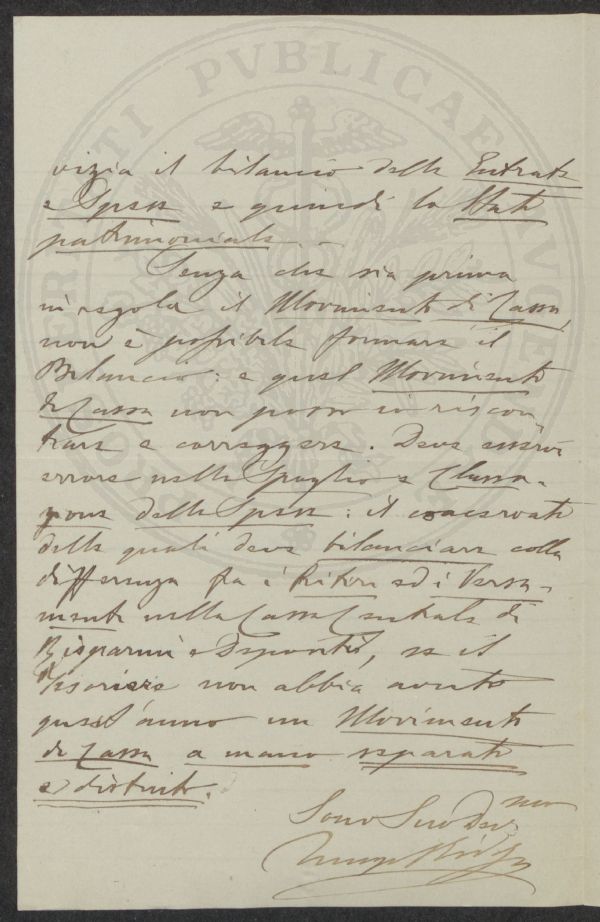 vizia il bilancio delle Entrate
e Spese e quindi lo Stato
patrimoniale. –
Senza che sia prima
in regola il Movimento di Cassa,
non è possibile formare il
Bilancio: e quel Movimento
di Cassa non posso io riscon
trare e correggere. Deve esservi
errore nello Spoglio e Classa-
zione delle Spese: il
delle quali deve bilanciare colla
differenza fra i Ritiri ed i Versa-
menti nella Cassa Centrale di
Risparmi e Depositi, se il
Tesoriere non abbia avuto
quest'anno un Movimento
di Cassa a mano separato
e distinto.
Sono Suo Dev mo